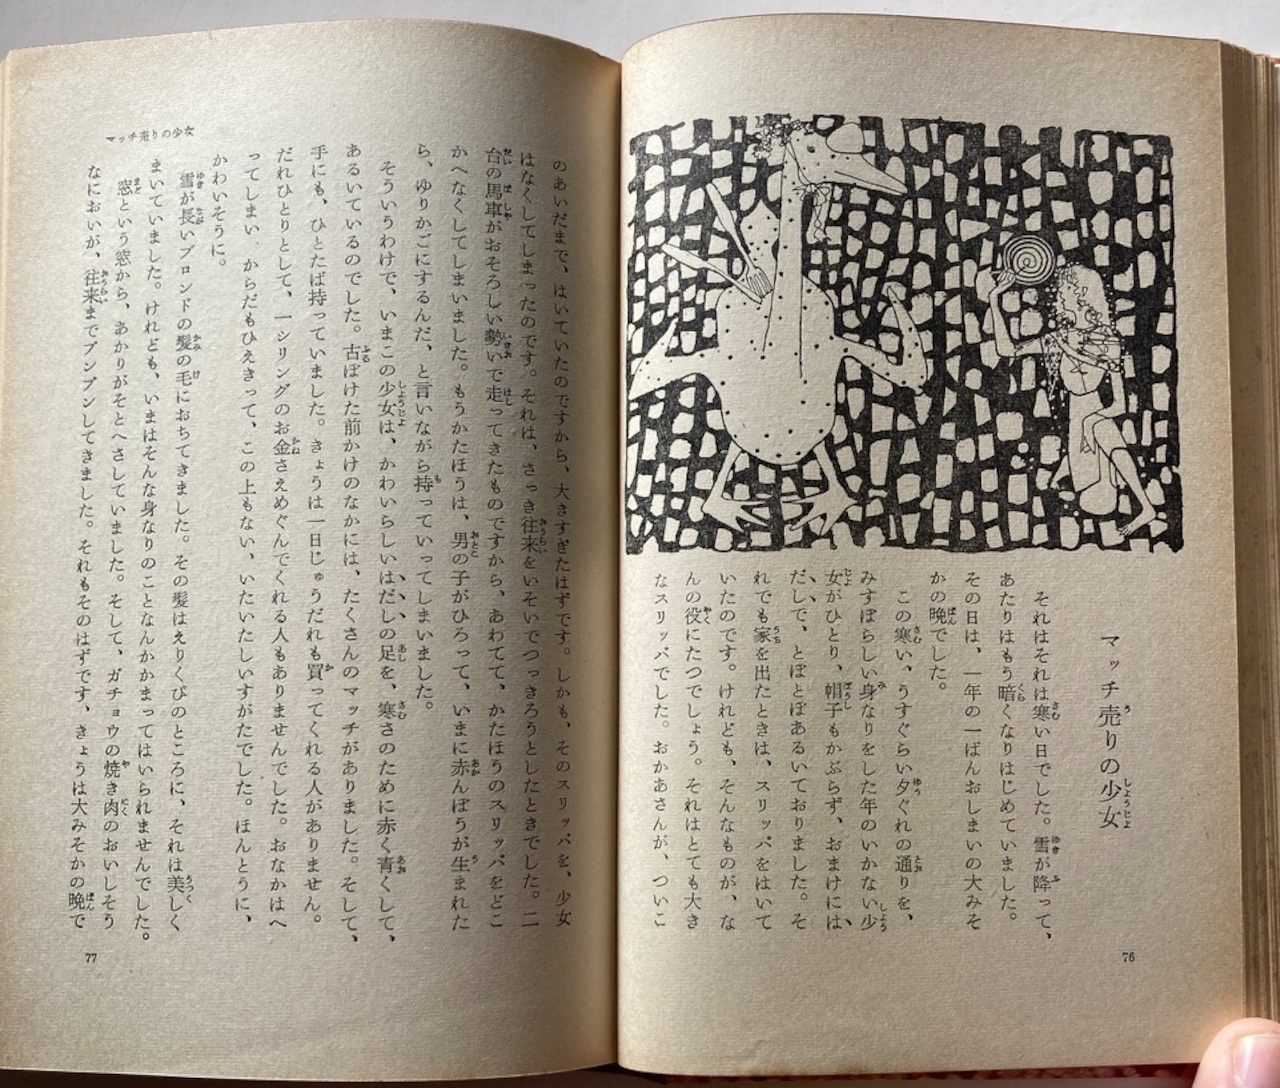 マッチ売りの少女
それはそれは寒い日でした。雪が降って、
あたりはもう暗くなりはじめていました。
その日は、一年の一ばんおしまいの大みそ
かの晩でした。
この寒い、うすぐらい夕ぐれの通りを、
みすぼらしい身なりをした年のいかない少
女がひとり、帽子もかぶらず、おまけには
だしで、とぼとぼあるいておりました。そ
れでも家を出たときは、スリッパをはいて
いたのです。けれども、そんなものが、な
んの役にたつでしょう。それはとても大き
なスリッパでした。おかあさんが、ついこ
76
のあいだまで、はいていたのですから、大きすぎたはずです。しかも、そのスリッパを、少女
はなくしてしまったのです。それは、さっき往来をいそいでつっきろうとしたときでした。二
台の馬車がおそろしい勢いで走ってきたものですから、あわてて、かたほうのスリッパをどこ
かへなくしてしまいました。もうかたほうは、男の子がひろって、いまに赤んぼうが生まれた
ら、ゆりかごにするんだ、と言いながら持っていってしまいました。
そういうわけで、いまこの少女は、かわいらしいはだしの足を、寒さのために赤く青くして、
あるいているのでした。古ぼけた前かけのなかには、たくさんのマッチがありました。そして、
手にも、ひとたば持っていました。きょうは一日じゅうだれも買ってくれる人がありません。
だれひとりとして、一シリングのお金さえめぐんでくれる人もありませんでした。おなかはへ
ってしまい、からだもひえきって、この上もない、いたいたしいすがたでした。ほんとうに、
かわいそうに。
雪が長いブロンドの髪の毛におちてきました。その髪はえりくびのところに、それは美しく
まいていました。けれども、いまはそんな身なりのことなんかかまってはいられませんでした。
窓という窓から、あかりがそとへさしていました。そして、ガチョウの焼き肉のおいしそう
なにおいが、往来までプンプンしてきました。それもそのはずです、きょうは大みそかの晩で
マッチ売りの少女
77